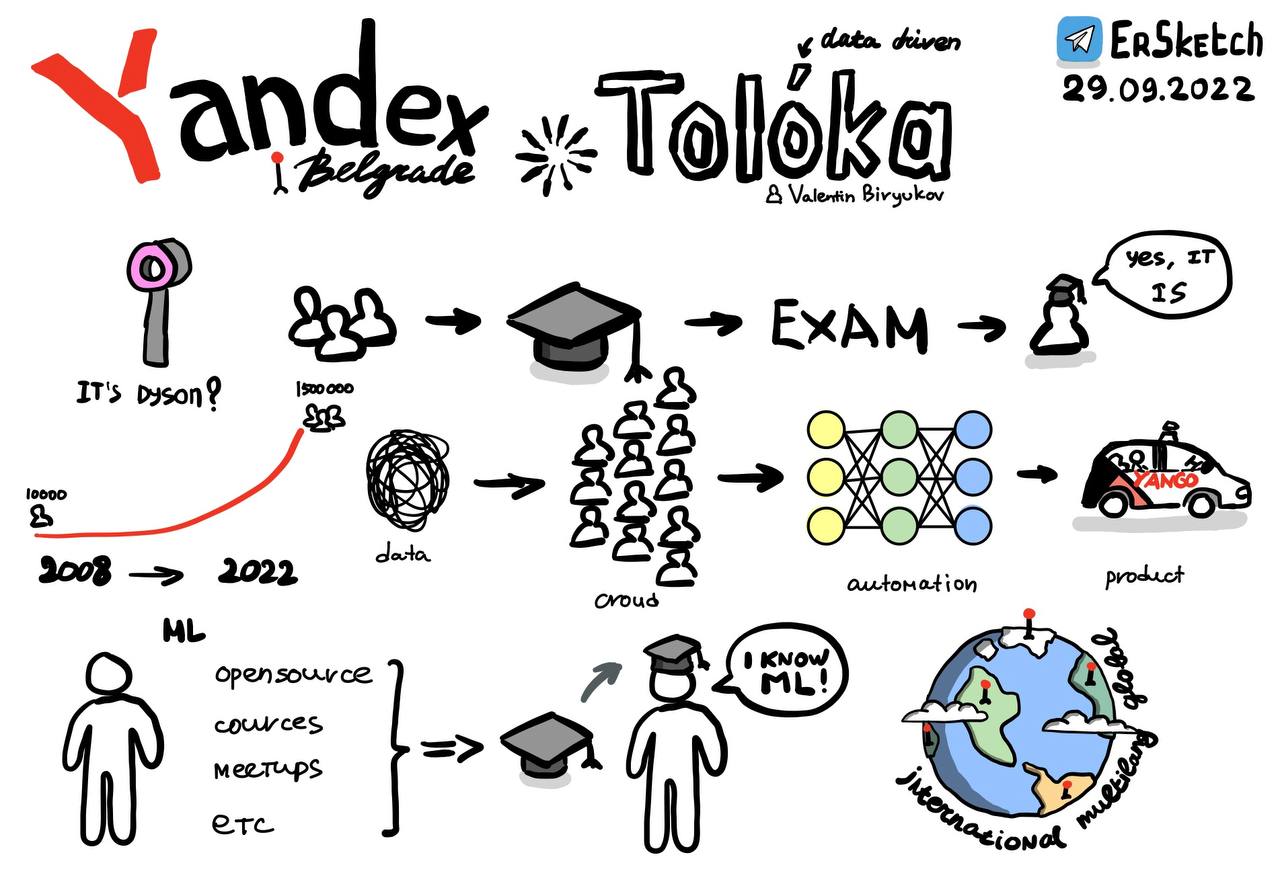 Yandex
Belgrade
data driven
Tolóka
Valentin Biryukov
ErSketch
29.09.2022
IT'S Dyson?
EXAM
yes, IT
IS
10000
1500 000
2008 → 2022
data
croud
automation
YANGO
product
ML
opensource
cources
MEETUPS
ETC
I KNOW
ML!
international multilang global